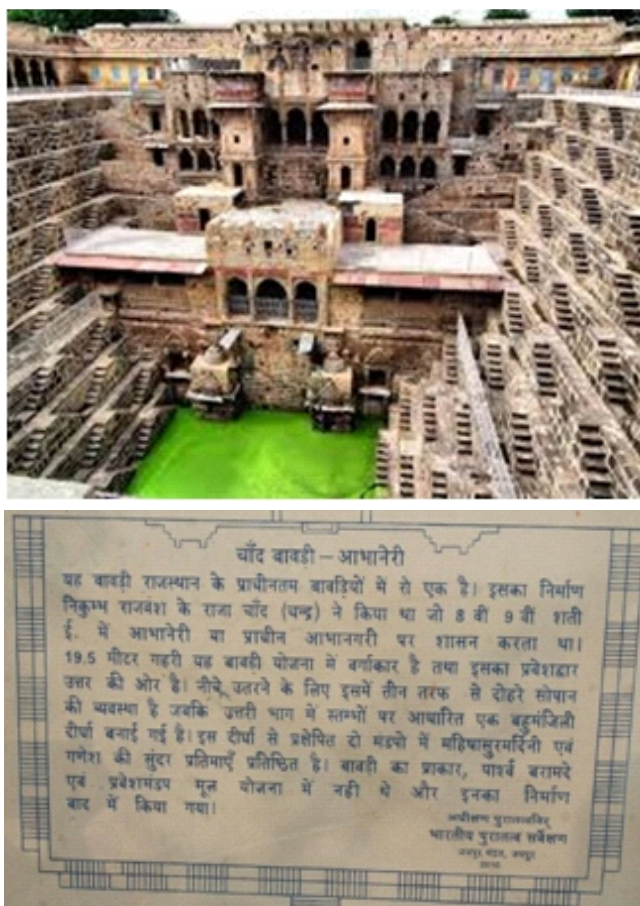 चाँद बावड़ी – आभानेरी
यह बावड़ी राजस्थान के प्राचीनतम बावड़ियों में से एक है। इसका निर्माण
निकुम्भ राजवंश के राजा चाँद (चन्द्र) ने किया था जो 8 वीं 9 वीं शती
ई. में आभानेरी या प्राचीन आभानगरी पर शासन करता था।
19.5 मीटर गहरी यह बावड़ी योजना में वर्गाकार है तथा इसका प्रवेशद्वार
उत्तर की ओर है। नीचे उतरने के लिए इसमें तीन तरफ से दोहरे सोपान
की व्यवस्था है जबकि उत्तरी भाग में स्तम्भों पर आधारित एक बहुमंजिली
दीर्घा बनाई गई है। इस दीर्घा से प्रक्षेपित दो मंडपो में महिषासुरमर्दिनी एवं
गणेश की सुंदर प्रतिमाएँ प्रतिष्ठित है। बावड़ी का प्राकार, पार्श्व बरामदे
एवं प्रवेशमंडप मूल योजना में नही थे और इनका निर्माण
बाद में किया गया।
अधीक्षण पुरातत्वविद्
भारतीय पुरातत्व सर्वेक्षण
जयपुर मंडल, जयपुर